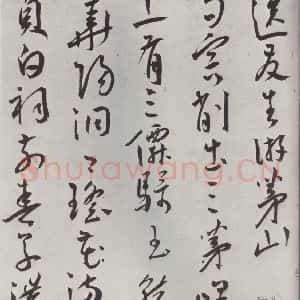 送友生游茅山
句容削出三茅
上有三僊玉
華陽洞口瑤花滿
貞白祠前春草濃
Shufawang.Cn